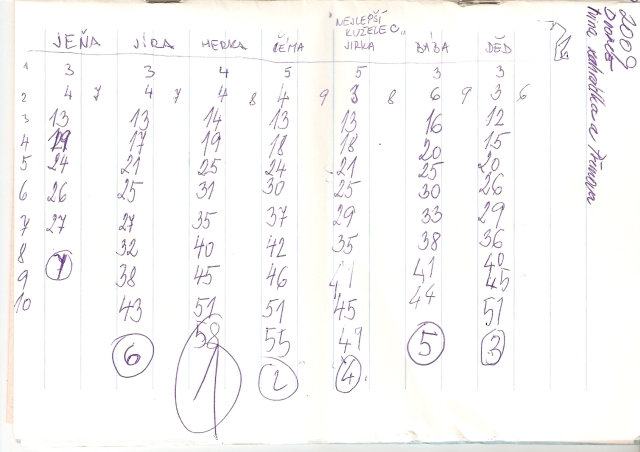 2009
NEJLEPŠÍ
KUŽELEC,,
JEŇA JÍRA MERKA ČÉMA JIRKA BÁBA DĚD
1 3 3 4 5 5 3 3
2 4 7 4 7 4 8 4 9 3 8 6 9 3 6
3 13 13 14 13 13 16 12
4 19 17 19 18 18 20 15
5 24 21 25 24 21 25 20
6 26 25 31 30 25 30 26
7 27 27 35 37 29 33 29
8 7 32 40 42 35 38 36
9 38 45 46 41 41 40
10 43 51 51 45 44 45
6 58 55 49 5 51
1 2 4 3